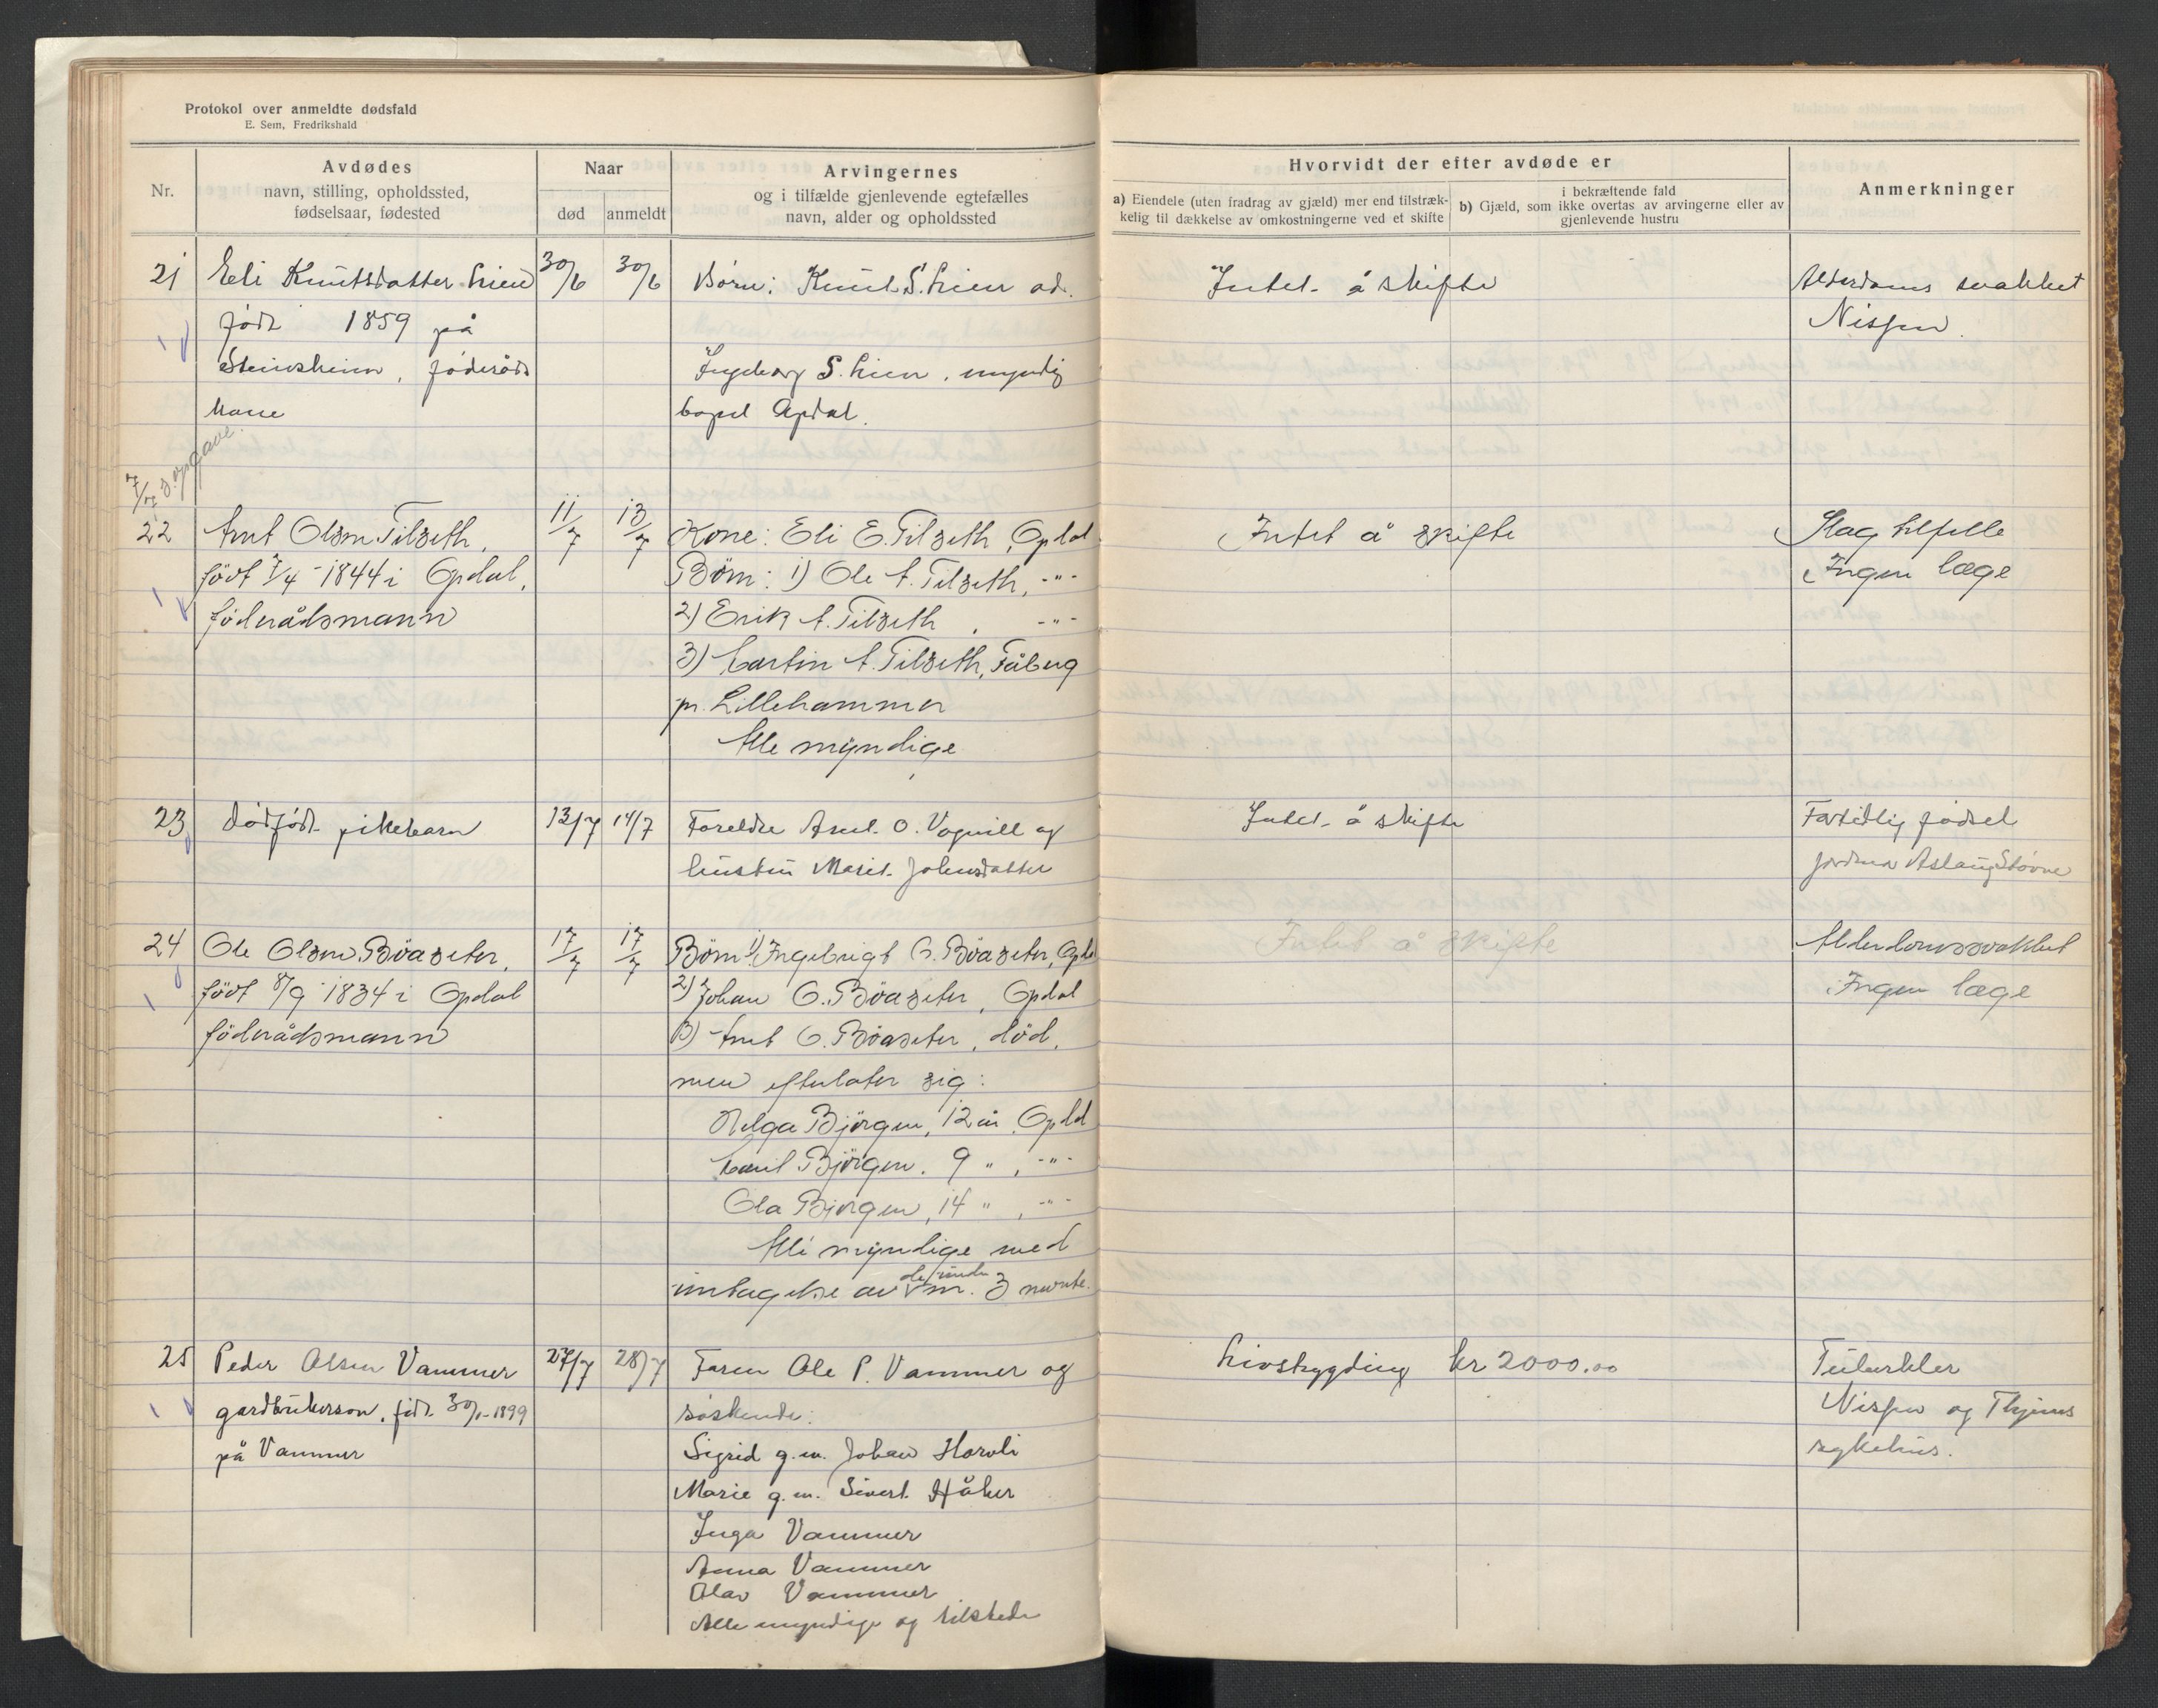 Protokol over anmeldte dødsfald
E. Sem, Fredrikshald
Nr.
Avdødes
navn, stilling, opholdssted,
fødselsaar, fødested
Naar
død
anmeldt
Arvingernes
og i tilfælde gjenlevende egtefælles
navn, alder og opholdssted
Hvorvidt der efter avdøde er
a) Eiendele (uten fradrag av gjæld) mer end tilstræk-
kelig til dækkelse av omkostningerne ved et skifte
i bekræftende fald
b) Gjæld, som ikke overtas av arvingerne eller av
gjenlevende hustru
Anmerkninger
21 Eli Knutsdatter Lien 30/6 30/6 Børn: Knut S. Lien Intet å skifte Alderdoms svakhet
født 1859 på Nissen.
føderåds Ingeborg S. Lien, myndig
kone bopel Opdal.
7/7 s. opgave.
22 Arnt Olsen Tilseth, 11/7 13/7 Kone: Eli E. Tilseth, Opdal Intet å skifte Slagtilfelle
født 7/4 - 1844 i Opdal, Børn: 1) Ole A. Tilseth, -"- Ingen læge
føderådsmann 2) Erik A. Tilseth, -"-
3) A. Tilseth, Fåberg
pr. Lillehammer
Alle myndige
23 dødfødt pikebarn 13/7 14/7 Foreldre Arnt O. Vognill og Intet å skifte Fortidlig fødsel
hustru Marit Johnsdatter jordmor Aslaug Støvne
24 Ole Olsen Böaseter, 17/7 17/7 Børn: 1) Ingebrigt O. Böaseter, Opdal Intet å skifte Alderdomssvakhet
født 8/9 1834 i Opdal 2) Johan O. Böaseter, Opdal Ingen læge
føderådsmann 3) Arnt O. Böaseter, död,
men efterlater sig:
Helga Björgen, 12 år, Opdal
Björgen, 9 ", -"-
Ola Björgen, 14 ", -"-
Alle myndige med
untagelse av de under nr. 3 nevnte.
25 Peder Olsen Vammer 27/7 28/7 Faren Ole P. Vammer og Livsbygding kr 2000.00 Tuberkler
gardbrukerson, født 30/1-1899 søskende: Nissen og Thjems
på Vammer Sigrid g.m. Johan Horvli sykehus.
Marie g.m. Sivert Håker
Inga Vammer
Anna Vammer
Olav Vammer
Alle myndige og tilstede